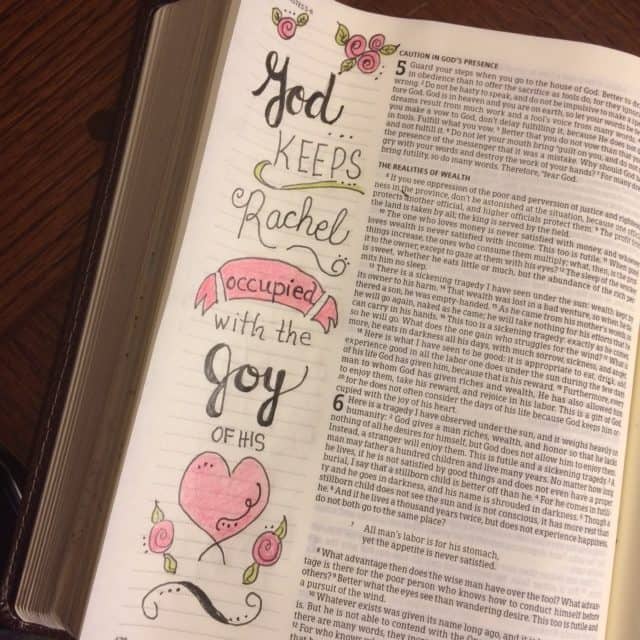 God
KEEPS
Rachel
occupied
with the
Joy
OF HIS
CAUTION IN GOD'S PRESENCE
5 Guard your steps when you go to the house of God. Better to
in obedience than to offer the sacrifice as fools do, for they
wrong. ² Do not be hasty to speak, and do not be impulsive to make a
fore God. God is in heaven and you are on earth, so let your words be
dreams result from much work and a fool's voice from many words.
you make a vow to God, don't delay fulfilling it, because He does not
in fools. Fulfill what you vow. ⁵ Better that you do not vow than
and not fulfill it. ⁶ Do not let your mouth bring guilt on you, and do
the presence of the messenger that it was a mistake. Why should God
gry with your words and destroy the work of your hands? ⁷ For many
bring futility, so do many words. Therefore, fear God.
THE REALITIES OF WEALTH
⁸ If you see oppression of the poor and perversion of justice and
ness in the province, don't be astonished at the situation, because one
protects another official, and higher officials protect them. ⁹ The
the land is taken by all; the king is served by the field.
¹⁰ The one who loves money is never satisfied with money, and whoever
loves wealth is never satisfied with income. This too is futile. ¹¹ When
things increase, the ones who consume them multiply; what, then, is the
to the owner, except to gaze at them with his eyes? ¹² The sleep of the
is sweet, whether he eats little or much, but the abundance of the rich
mits him no sleep.
¹³ There is a sickening tragedy I have seen under the sun: wealth kept by
its owner to his harm. ¹⁴ That wealth was lost in a bad venture, so when he
thered a son, he was empty-handed. ¹⁵ As he came from his mother's womb,
he will go again, naked as he came; he will take nothing for his efforts that
can carry in his hands. ¹⁶ This too is a sickening tragedy: exactly as he comes,
so he will go. What does the one gain who struggles for the wind? ¹⁷ What is
more, he eats in darkness all his days, with much sorrow, sickness, and
¹⁸ Here is what I have seen to be good: it is appropriate to eat, drink, and
experience good in all the labor one does under the sun during the few days
of his life God has given him, because that is his reward. ¹⁹ Furthermore, every
man to whom God has given riches and wealth, He has also allowed him
to enjoy them, take his reward, and rejoice in his labor. This is a gift of God,
²⁰ for he does not often consider the days of his life because God keeps him
cupied with the joy of his heart.
6 Here is a tragedy I have observed under the sun, and it weighs heavily on
humanity: ² God gives a man riches, wealth, and honor so that he lacks
nothing of all he desires for himself, but God does not allow him to enjoy them.
Instead, a stranger will enjoy them. This is futile and a sickening tragedy. ³ A
man may father a hundred children and live many years. No matter how long
he lives, if he is not satisfied by good things and does not even have a proper
burial, I say that a stillborn child is better off than he. ⁴ For he comes in
ty and he goes in darkness, and his name is shrouded in darkness. ⁵ Though a
stillborn child does not see the sun and is not conscious, it has more rest than
he. ⁶ And if he lives a thousand years twice, but does not experience happiness,
do not both go to the same place?
⁷ All man's labor is for his stomach,
yet the appetite is never satisfied.
⁸ What advantage then does the wise man have over the fool? What
tage is there for the poor person who knows how to conduct himself before
others? ⁹ Better what the eyes see than wandering desire. This too is futile and
a pursuit of the wind.
¹⁰ Whatever exists was given its name long ago, and
is. But he is not able to contend with the One
there are many words, they
¹² For who knows